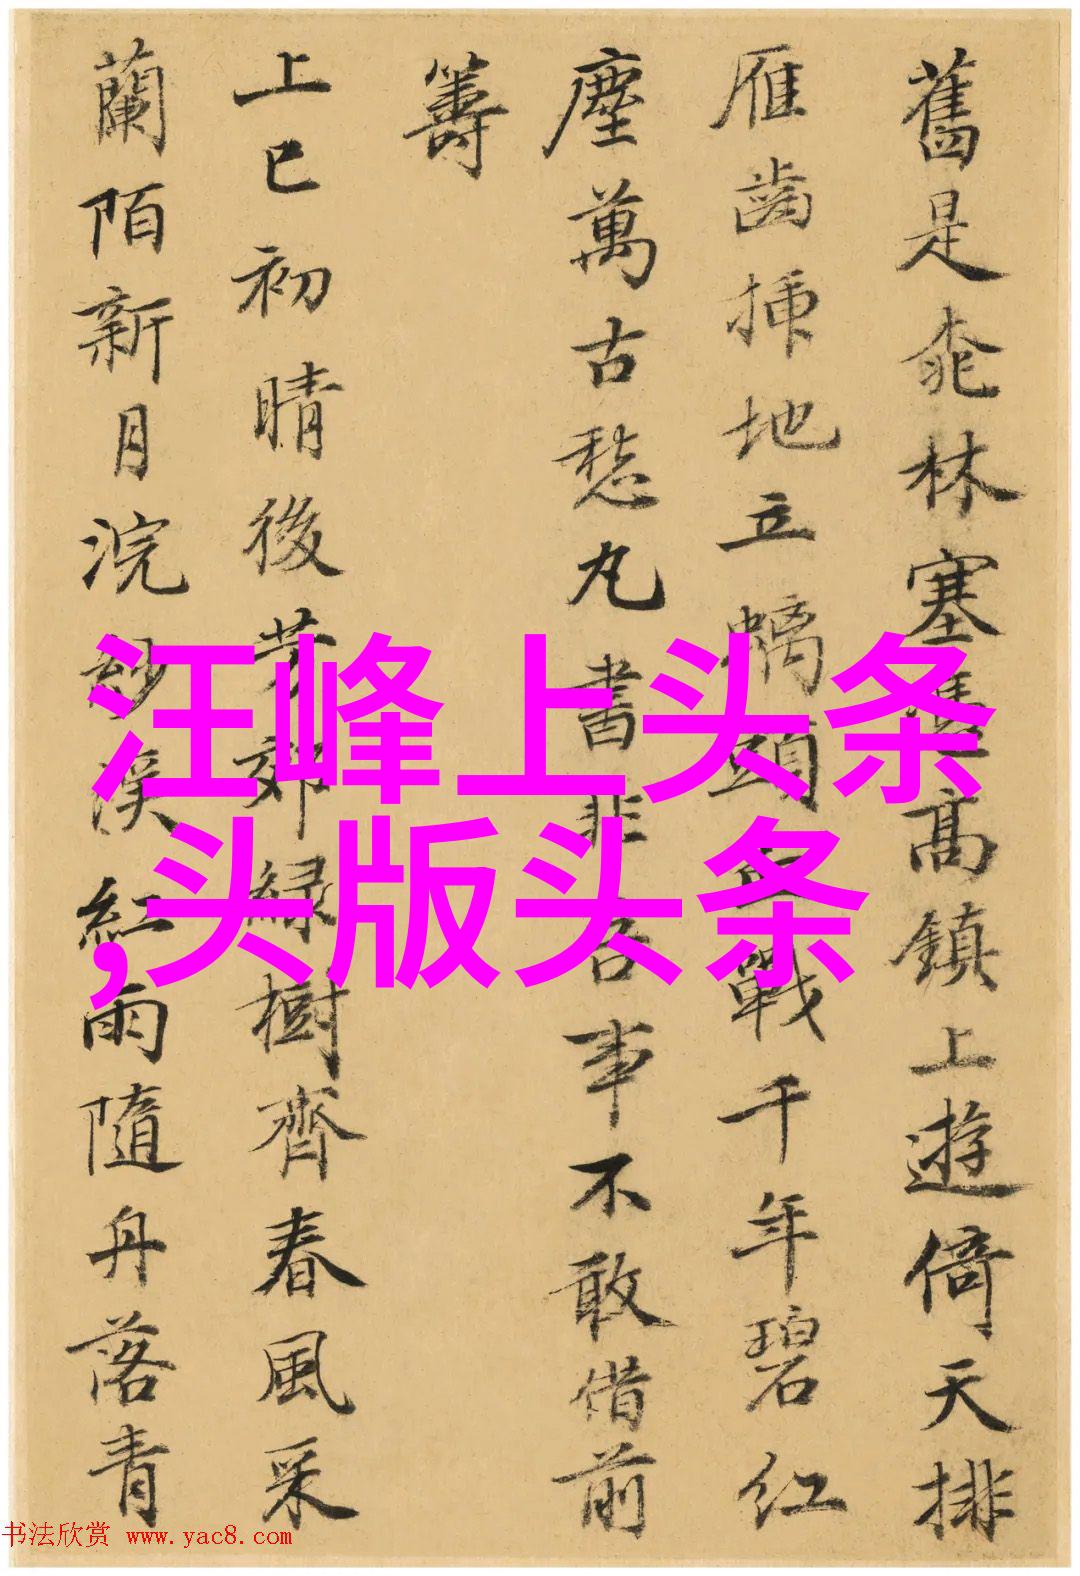 舊是桃林塞憑高鎮上遊倚天排
雁齒插地立螭頭百戰千年碧紅
塵萬古愁丸書非吾事不敢借前
籌
上巳初晴後芳郊緑樹齊春風采
蘭陌新月浣紗溪紅雨隨舟落青
汪峰上头条
,头版头条
书法欣赏 www.yac8.com